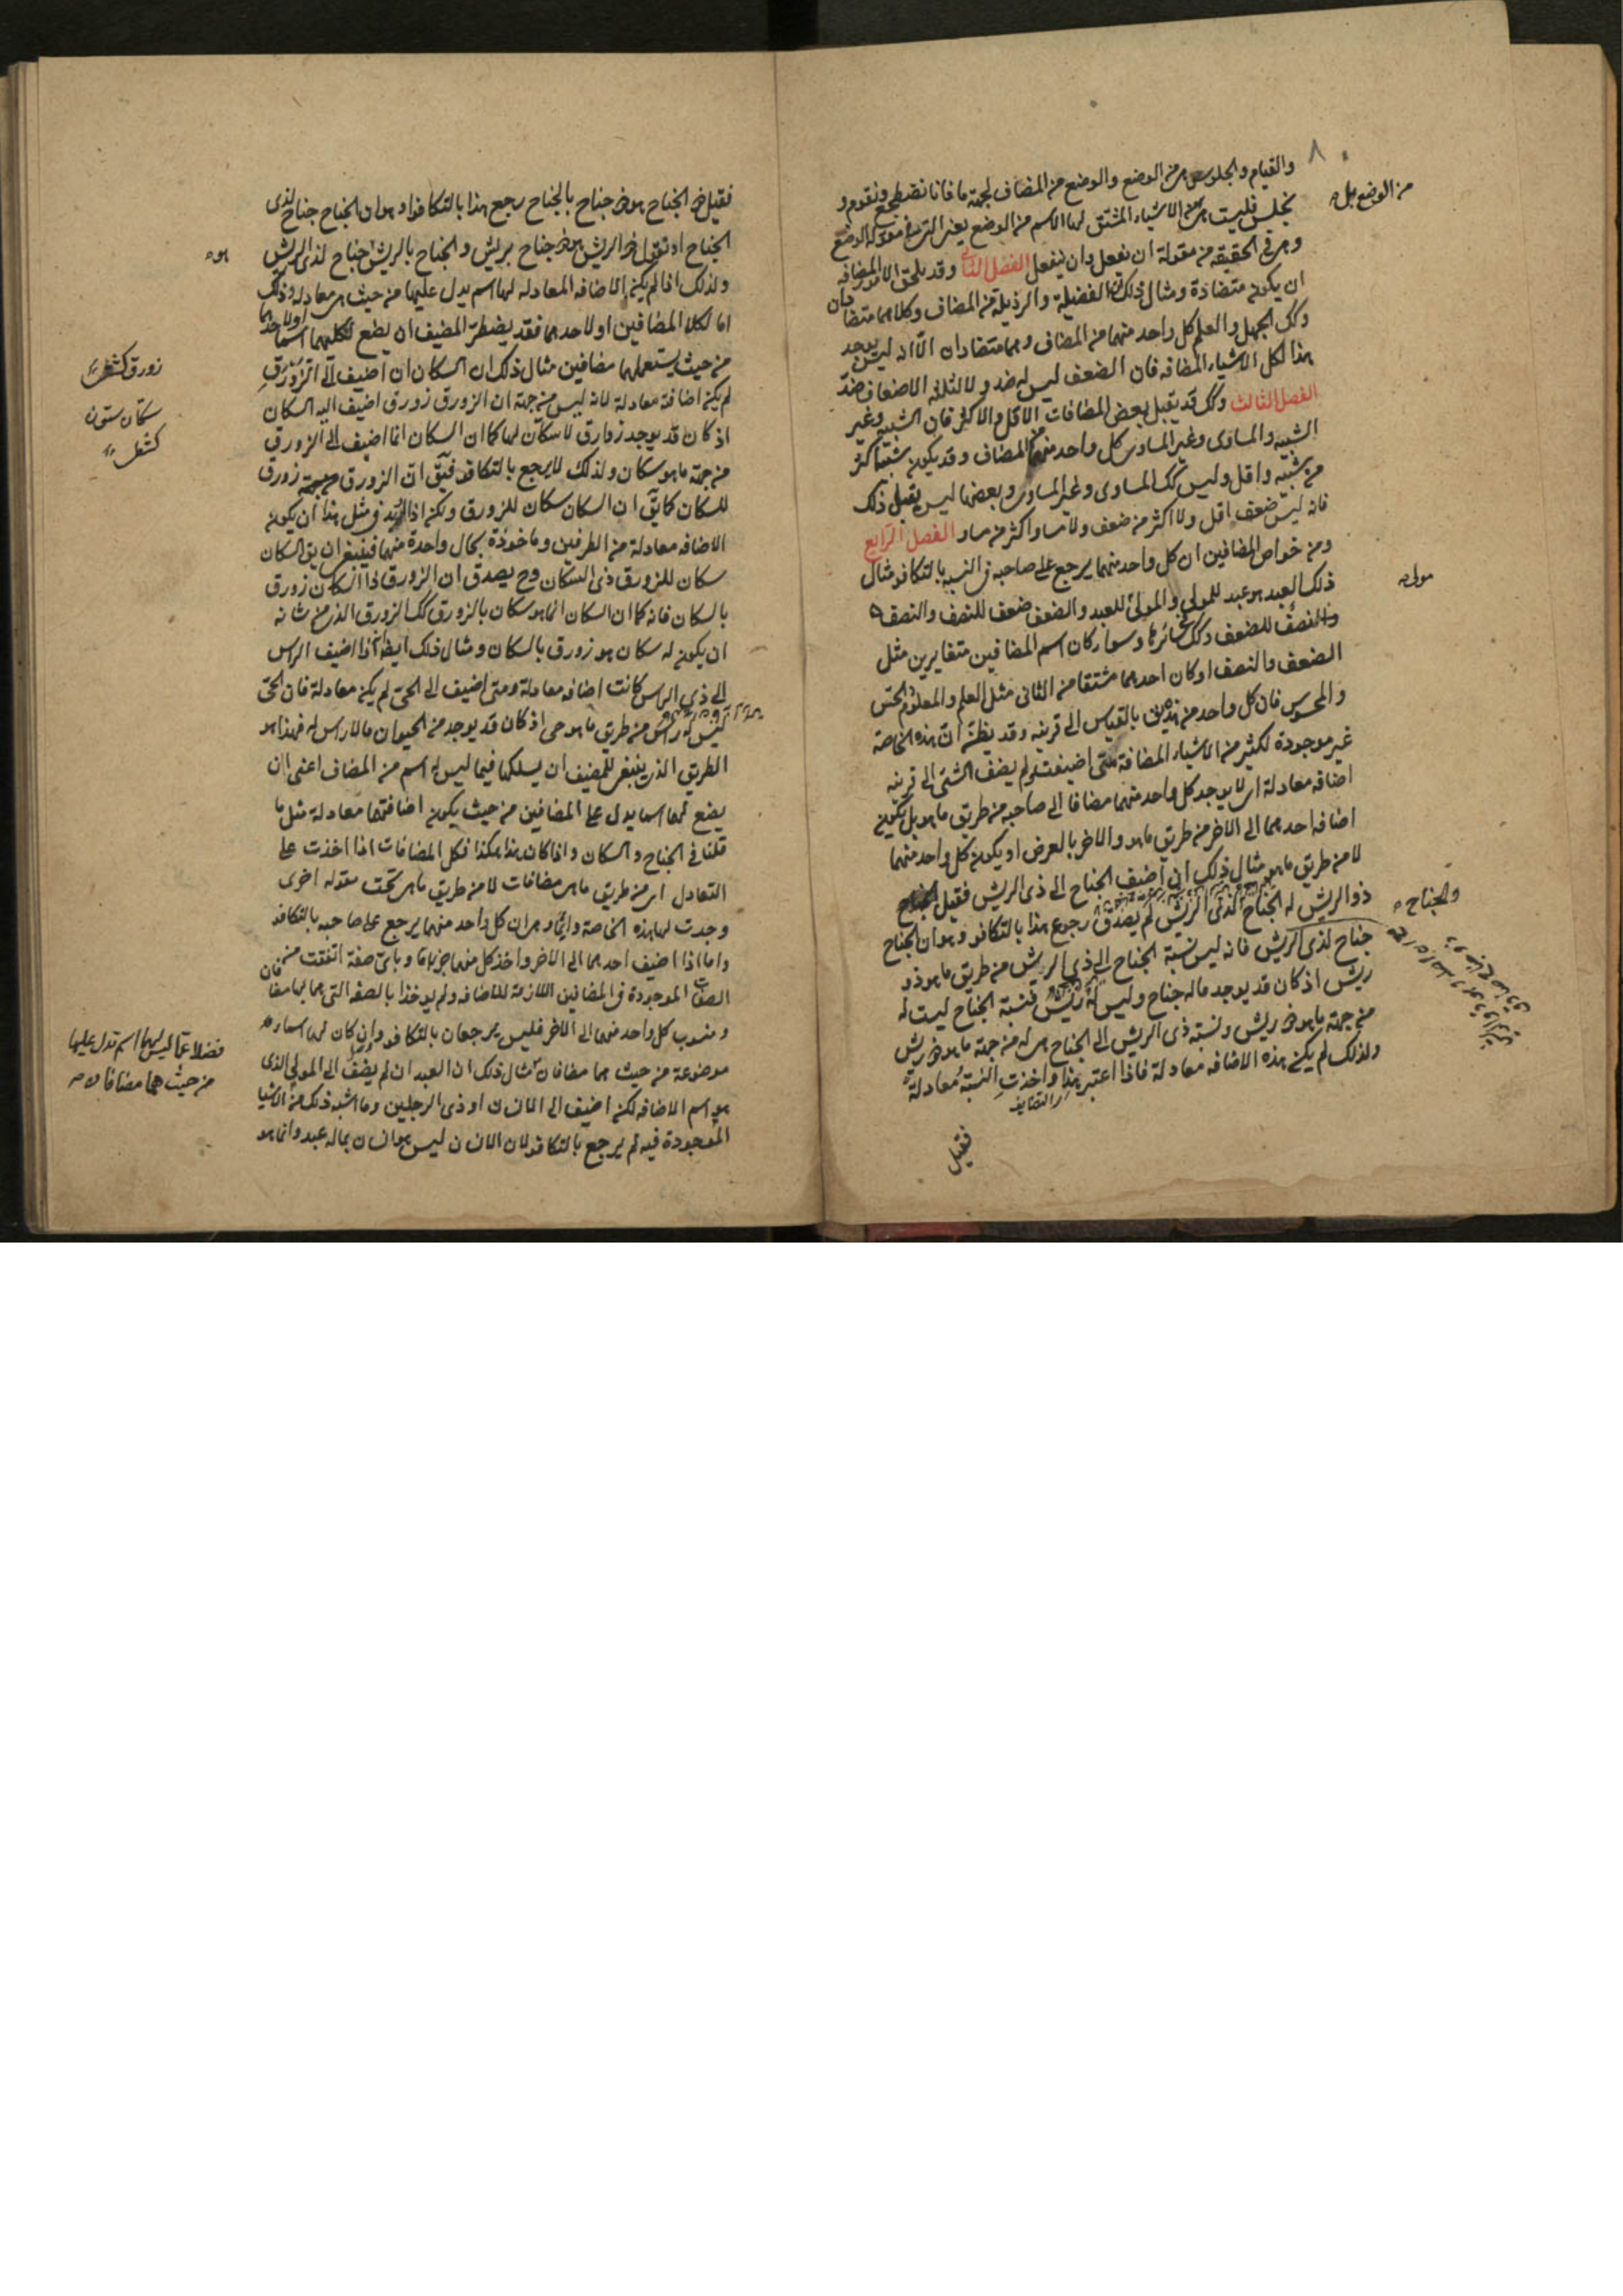 والقيام والجلوس هى من الوضع والوضع من المضاف لجهة ما فانا نضطجع ونقوم و
نجلس فليست هى من الاشياء المشتق لها الاسم من الوضع يعنى التى فى مقولة الوضع
وهى فى الحقيقة من مقولة ان تفعل وان ينفعل الفصل الثانى وقد يلحق الامور المضافه
ان يكون متضادة ومثال ذلك ان الفضيلة والرذيلة من المضاف وكلاهما متضادان
وكك الجهل والعلم كل واحد منهما من المضاف وهما متضادان الا انه ليس يوجد
هذا لكل الاشياء المضافه فان الضعف ليس له ضد ولا لثلثة الاضعاف ضد
الفصل الثالث وكك قد يقبل بعض المضافات الاقل والاكثر فان الشبيه وغير
الشبيه والمساوى وغير المساوى كل واحد منهما من المضاف وقد يكون شبيه اكثر
من شبيه واقل وليس كك المساوى وغير المساوى وبعضها ليس يقبل ذلك
فانه ليس ضعف اقل ولا اكثر من ضعف ولا مساو اكثر من مساو الفصل الرابع
ومن خواص المضافين ان كل واحد منهما يرجع على صاحبه فى النسبه بالتكافو مثال
ذلك العبد هو عبد للمولى والمولى للعبد والضعف ضعف للنصف والنصف
والنصف للضعف وكك فى سائرها وسواء كان اسم المضافين متغايرين مثل
الضعف والنصف او كان احدهما مشتقا من الثانى مثل العلم والمعلوم والحس
والمحسوس فان كل واحد من هذين بالقياس الى قرينه وقد يظن ان هذه الخاصة
غير موجودة لكثير من الاشياء المضافة متى اضيفت ولم يضف الشئ الى قرينه
اضافه معادلة اى لا يوجد كل واحد منهما مضافا الى صاحبه من طريق ما هو بل يكون
اضافه احدهما الى الاخر من طريق ما هو والاخر بالعرض او يكون كل واحد منهما
لا من طريق ما هو مثال ذلك ان اضيف الجناح الى ذى الريش فقيل الجناح
ذو الريش له الجناح الذى الريش لم يصدق رجوع هذا بالتكافو وهو ان الجناح
جناح لذى الريش فانه ليس نسبة الجناح الى ذى الريش من طريق ما هو ذو
ريش اذ كان قد يوجد ماله جناح وليس له ريش فنسبة الجناح ليست له
من جهة ما هو ذو ريش ونسبة ذى الريش الى الجناح هى له من جهة ما هو ذو ريش
ولذلك لم يكن هذه الاضافه معادلة فاذا اعتبر هذا واخذت النسبة معادلة
والتضايف
فقيل
من الوضع بل
مولى
والجناح
فقيل ذو الجناح هو ذو جناح بالجناح رجع هذا بالتكافو وهو ان الجناح جناح لذى
الجناح او نقول ذو الريش هو ذو جناح بريش والجناح بالريش جناح لذى الريش
ولذلك اذا لم يكن للاضافه المعادله لها اسم يدل عليها من حيث هى معادلة وذلك
اما لكلا المضافين او لاحدهما فقد يضطر المضيف ان يضع لكليهما اسما او لاحدهما
من حيث يستعملهما مضافين مثال ذلك ان السكان ان اضيف الى الزورق
لم يكن اضافة معادلة لانه ليس من جهة ان الزورق زورق اضيف اليه السكان
اذ كان قد يوجد زوارق لا سكان لها كما ان السكان انما اضيف الى الزورق
من جهة ما هو سكان ولذلك لا يرجع بالتكافو فيق ان الزورق من جهة زورق
للسكان كما يق ان السكان سكان للزورق ولكن اذا اريد فى مثل هذا ان يكون
الاضافه معادلة من الطرفين وماخوذة بحال واحدة منهما فينبغى ان يق السكان
سكان للزورق ذى السكان وح يصدق ان الزورق ذا السكان زورق
بالسكان فانه كما ان السكان انما هو سكان بالزورق كك الزورق الذى من شانه
ان يكون له سكان هو زورق بالسكان ومثال ذلك ايضا اذا اضيف الراس
الى ذى الراس كانت اضافه معادلة ومتى اضيف الى الحى لم يكن معادلة فان الحى
ليس له راس من طريق ما هو حى اذ كان قد يوجد من الحيوان ما لا راس له فهذا هو
الطريق الذى ينبغى للمضيف ان يسلكها فيما ليس له اسم من المضاف اعنى ان
يضع لهما اسما يدل على المضافين من حيث يكون اضافتهما معادلة مثل ما
قلنا فى الجناح والسكان واذا كان هذا هكذا فكل المضافات اذا اخذت على
التعادل اى من طريق ما هى مضافات لا من طريق ما هى تحت مقوله اخرى
وجدت لها هذه الخاصة دائما وهى ان كل واحد منهما يرجع على صاحبه بالتكافو
واما اذا اضيف احدهما الى الاخر واخذ كل منهما جزافا وباى صفة اتفقت من
الصفات الموجودة فى المضافين اللازمة للاضافه ولم يوخذا بالصفه التى هما بها مضافان
ومنسوب كل واحد منهما الى الاخر فليس يرجعان بالتكافو وان كان لهما اسماء
موضوعة من حيث هما مضافان مثال ذلك ان العبد ان لم يضف الى المولى الذى
هو اسم الاضافه لكن اضيف الى الانسان او ذى الرجلين وما اشبه ذلك من الاشياء
الموجودة فيه لم يرجع بالتكافو لان الانسان ليس هو انسان بماله عبد وانما هو
هو
زورق كشتى
سكان ستون
كشتى
فضلا عما ليس لهما اسم تدل عليها
من حيث هما مضافان